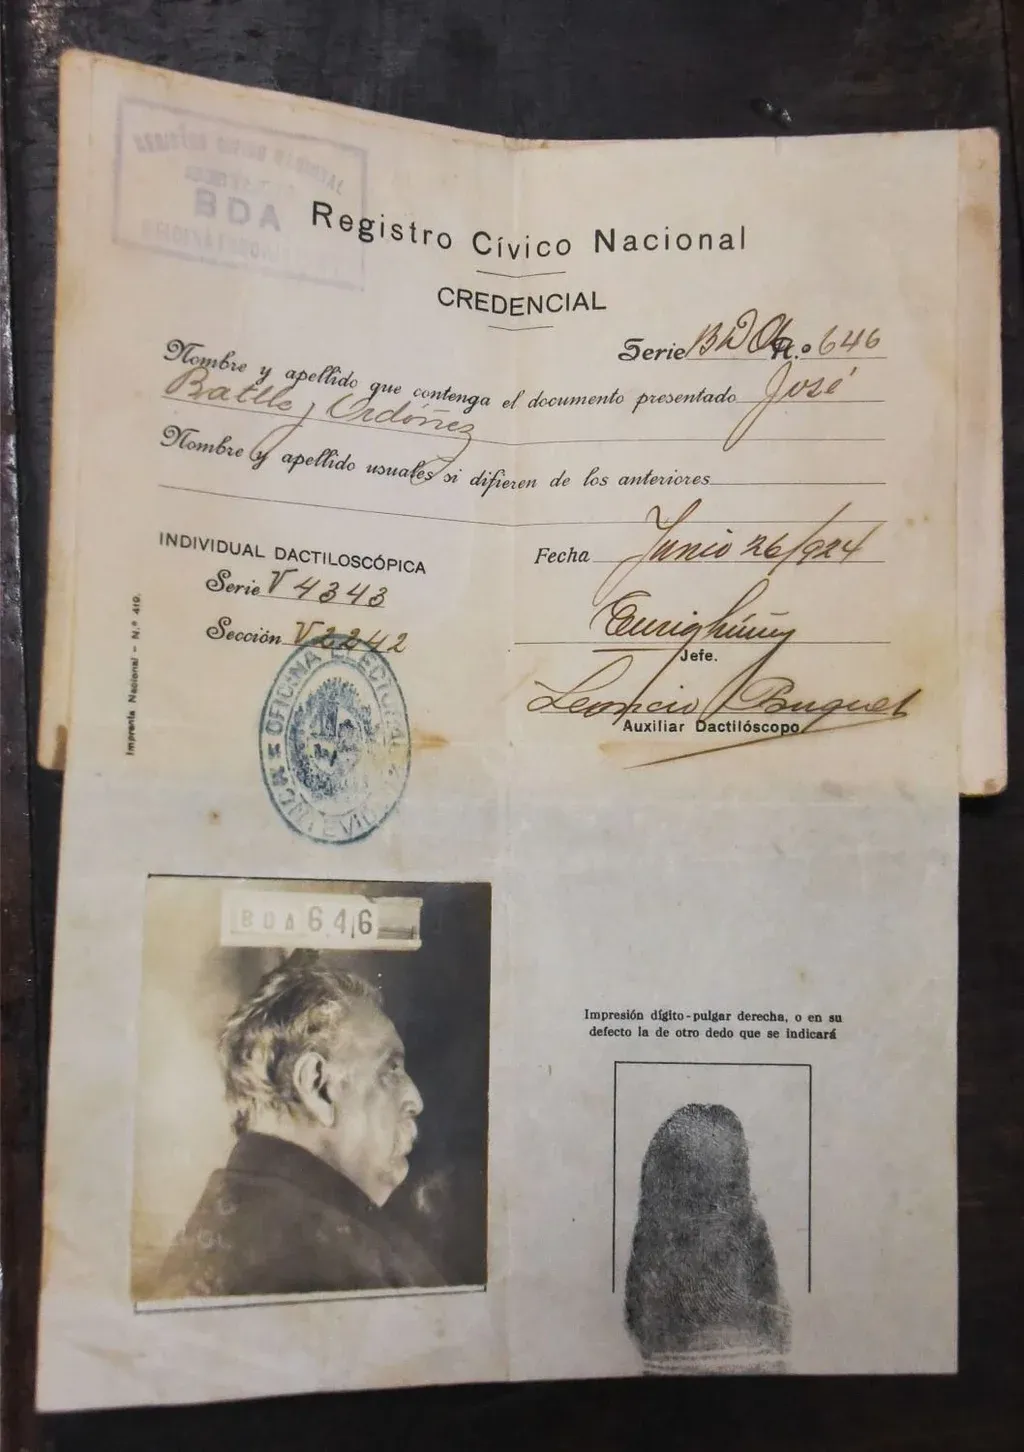 BDA
Registro Cívico Nacional
CREDENCIAL
Serie BDA N.º 646
Nombre y apellido que contenga el documento presentado José
Batlle y Ordóñez
Nombre y apellido usuales si difieren de los anteriores
INDIVIDUAL DACTILOSCÓPICA
Serie V 4343
Sección V2242
Fecha Junio 26/924
Jefe.
Leoncio Buquet
Auxiliar Dactilóscopo
Imprenta Nacional – N.º 419.
OFICINA ELECTORAL
BDA 646
Impresión dígito-pulgar derecha, o en su
defecto la de otro dedo que se indicará